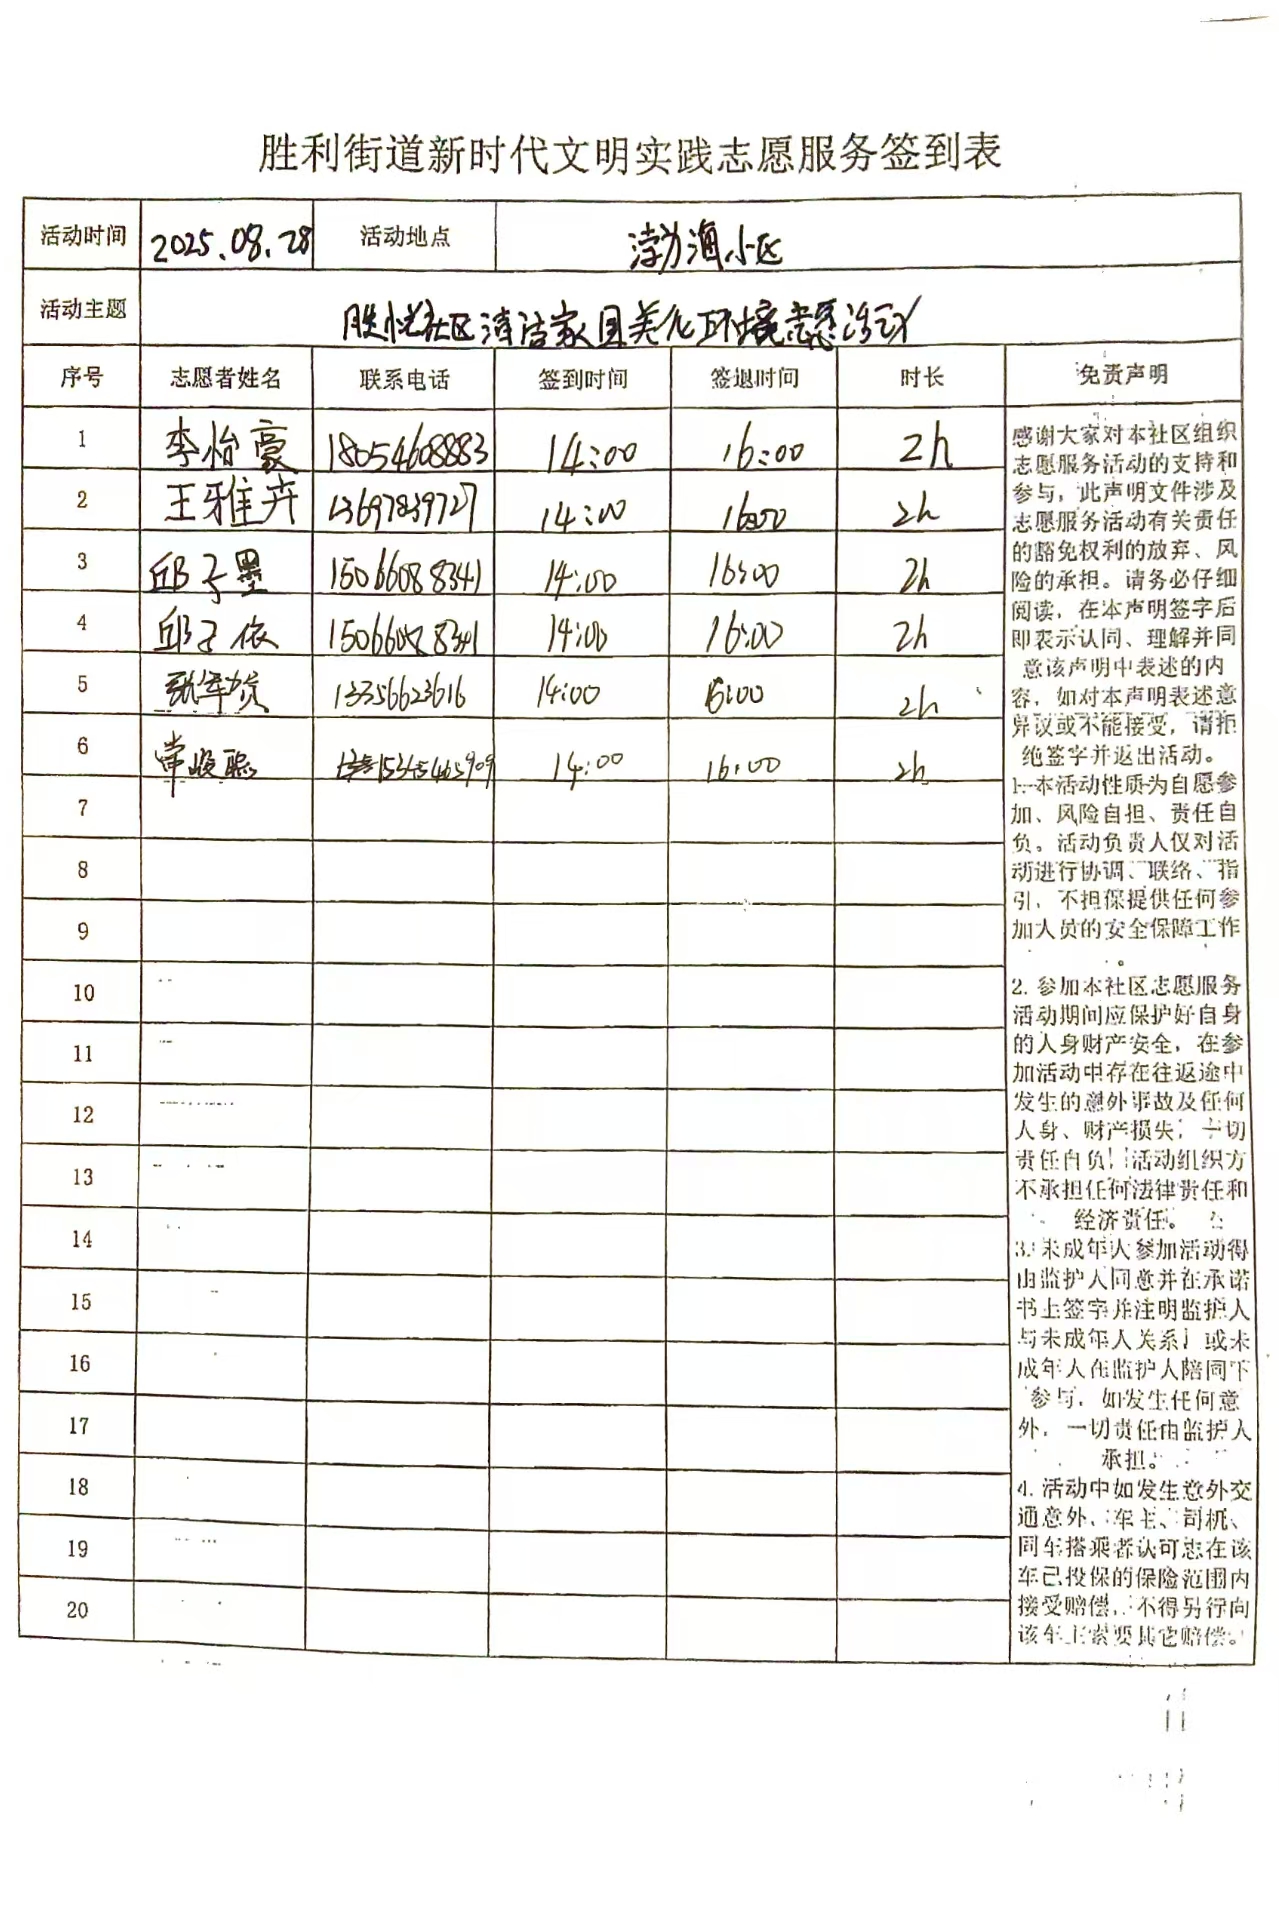 胜利街道新时代文明实践志愿服务签到表
活动时间 2025.08.28 活动地点 渤海小区
活动主题 胜悦社区清洁家园美化环境志愿活动
序号 志愿者姓名 联系电话 签到时间 签退时间 时长 免责声明
1 李怡豪 18054608883 14:00 16:00 2h
2 王雅卉 13697839727 14:00 16:00 2h
3 邱子墨 15066088341 14:00 16:00 2h
4 邱子依 15066088341 14:00 16:00 2h
5 13356623616 14:00 16:00 2h
6 常俊聪 15345465909 14:00 16:00 2h
7
8
9
10
11
12
13
14
15
16
17
18
19
20
感谢大家对本社区组织
志愿服务活动的支持和
参与，此声明文件涉及
志愿服务活动有关责任
的豁免权利的放弃、风
险的承担。请务必仔细
阅读，在本声明签字后
即表示认同、理解并同
意该声明中表述的内
容，如对本声明表述意
异议或不能接受，请拒
绝签字并返出活动。
1.本活动性质为自愿参
加、风险自担、责任自
负。活动负责人仅对活
动进行协调、联络、指
引，不担保提供任何参
加人员的安全保障工作
。
2. 参加本社区志愿服务
活动期间应保护好自身
的人身财产安全，在参
加活动中存在往返途中
发生的意外事故及任何
人身、财产损失，一切
责任自负，活动组织方
不承担任何法律责任和
经济责任。
3.未成年人参加活动得
由监护人同意并在承诺
书上签字并注明监护人
与未成年人关系，或未
成年人在监护人陪同下
参与，如发生任何意
外，一切责任由监护人
承担。
4. 活动中如发生意外交
通意外，车主、司机、
同车搭乘者认可志在该
车已投保的保险范围内
接受赔偿，不得另行向
该车主索要其它赔偿。